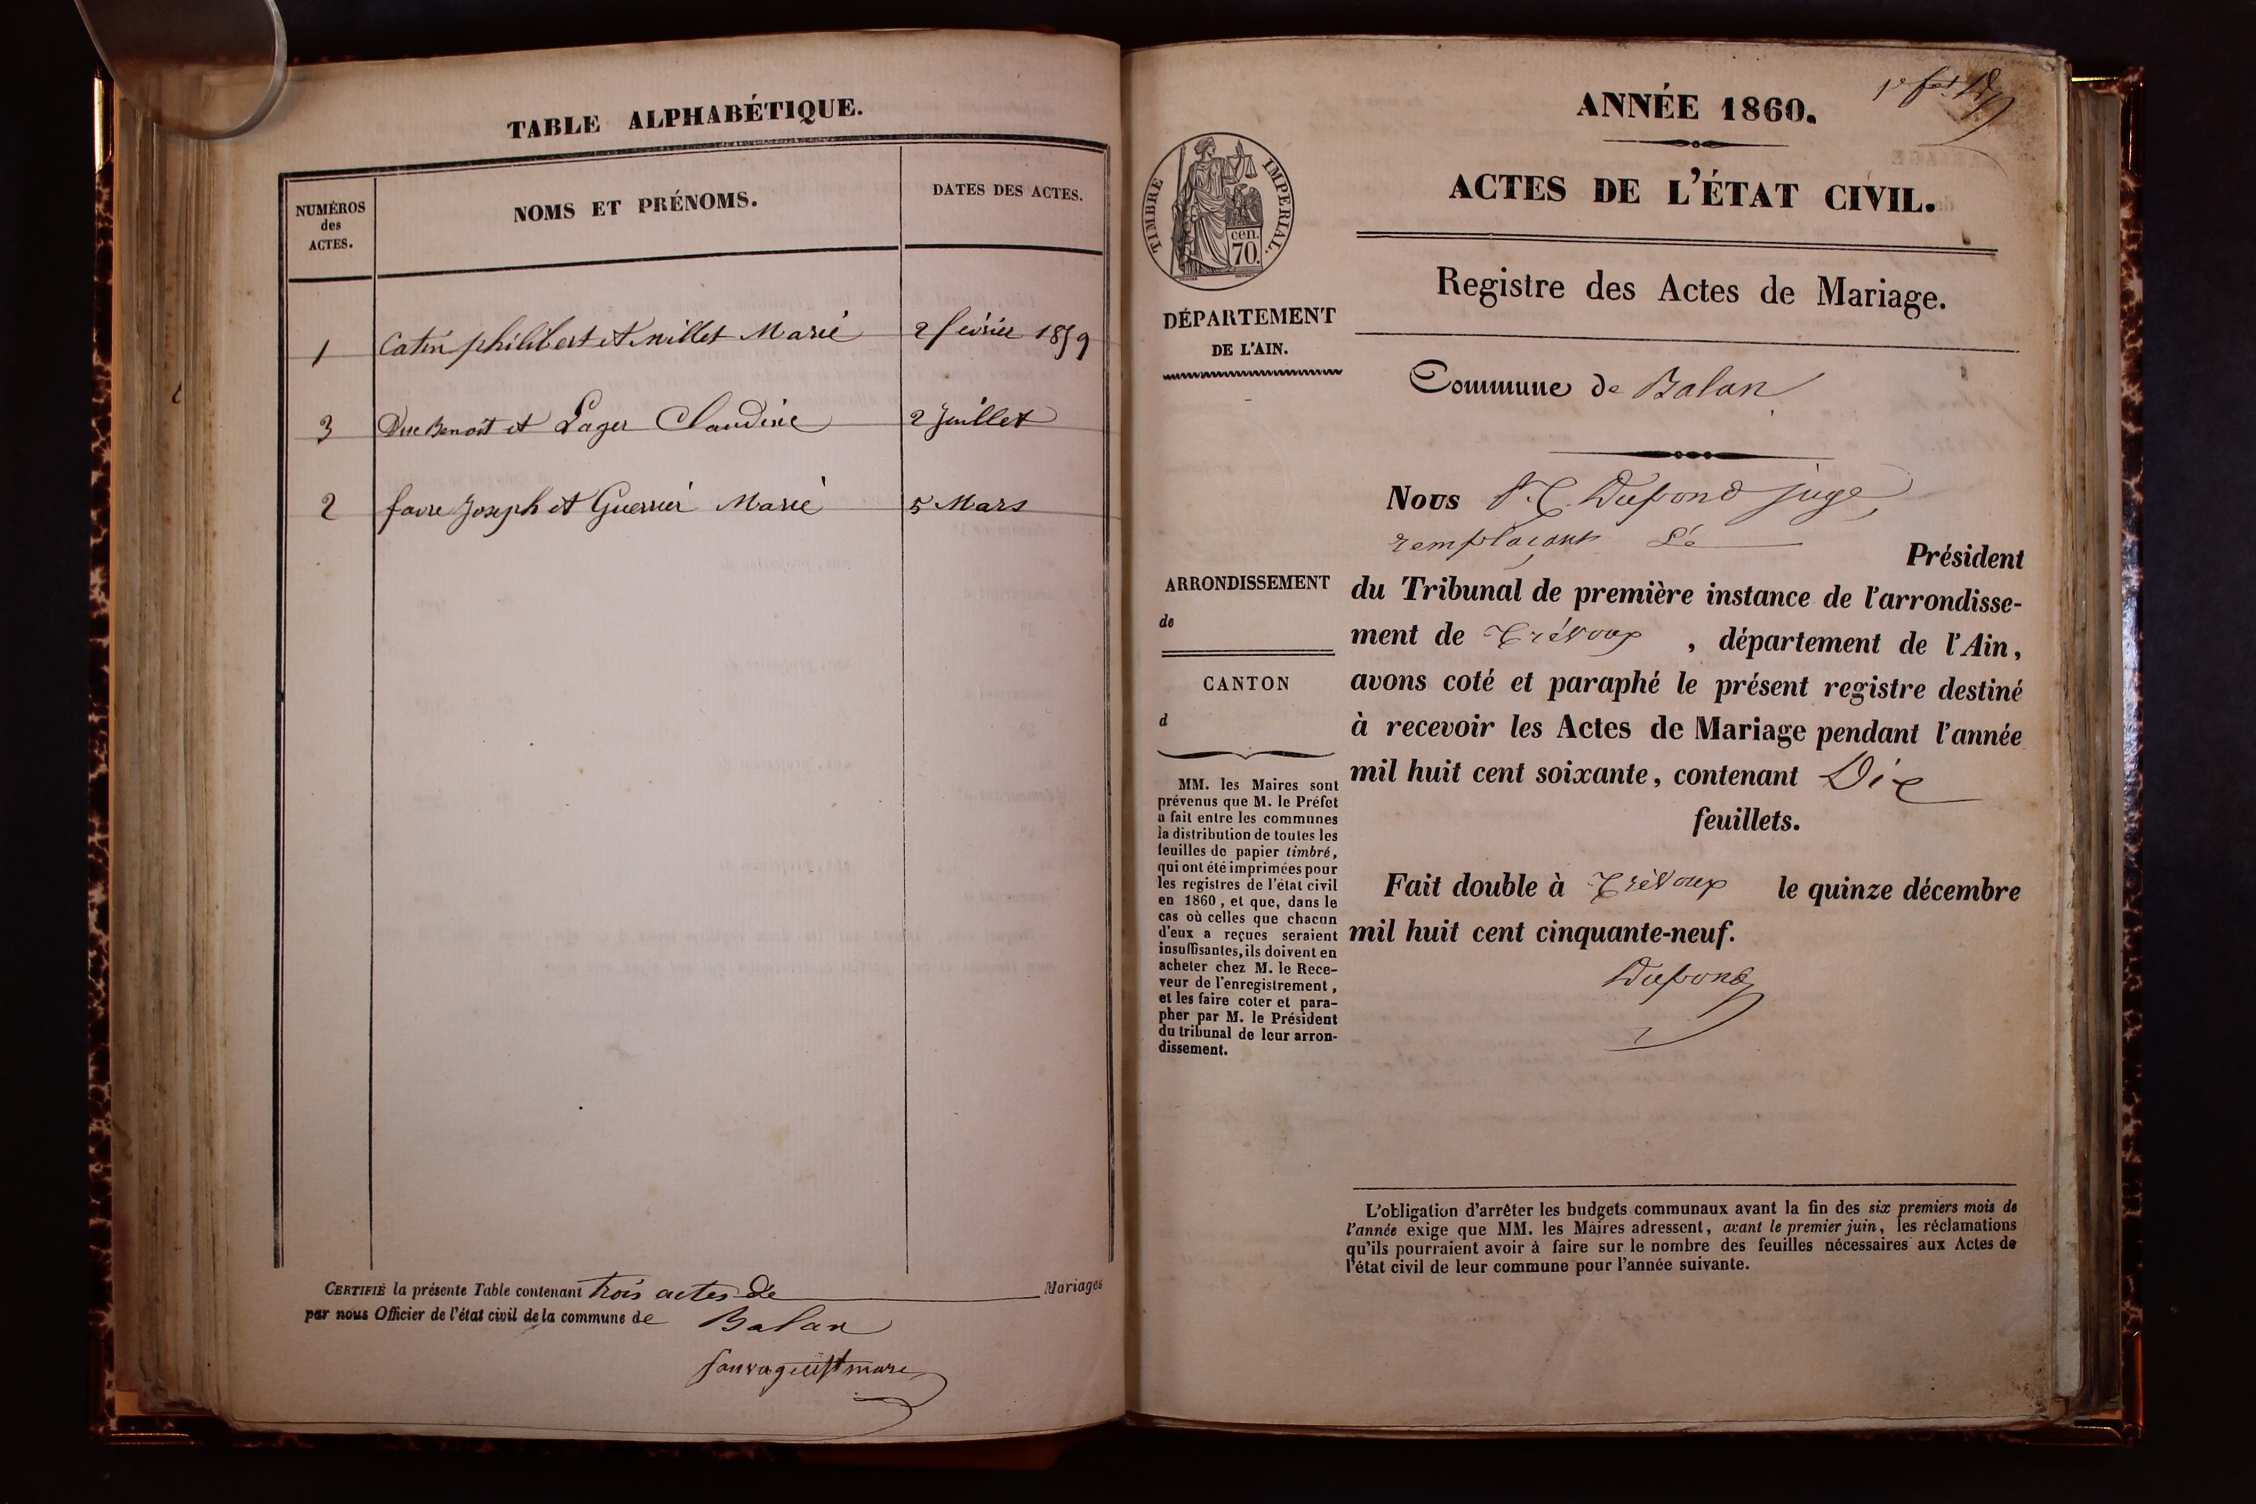 TABLE ALPHABÉTIQUE.
NUMÉROS
des
ACTES.
NOMS ET PRÉNOMS.
DATES DES ACTES.
1 Catin philibert et Millet Marie 2 février 1859
3 Duc Benoit et Lager Claudine 2 Juillet
2 favre Joseph et Guerrier Marie 5 Mars
CERTIFIÉ la présente Table contenant trois actes de Mariages
par nous Officier de l'état civil de la commune de Balan
ANNÉE 1860.
ACTES DE L'ÉTAT CIVIL.
TIMBRE IMPERIAL.
cen.
70.
Registre des Actes de Mariage.
DÉPARTEMENT
DE L'AIN.
Commune de Balan
Nous Dupond juge
remplaçant Le
Président
du Tribunal de première instance de l'arrondisse-
ment de Trévoux, département de l'Ain,
avons coté et paraphé le présent registre destiné
à recevoir les Actes de Mariage pendant l'année
mil huit cent soixante, contenant Dix
feuillets.
Fait double à Trévoux le quinze décembre
mil huit cent cinquante-neuf.
Dupond
ARRONDISSEMENT
de
CANTON
d
MM. les Maires sont
prévenus que M. le Préfet
a fait entre les communes
la distribution de toutes les
feuilles de papier timbré,
qui ont été imprimées pour
les registres de l'état civil
en 1860, et que, dans le
cas où celles que chacun
d'eux a reçues seraient
insuffisantes, ils doivent en
acheter chez M. le Rece-
veur de l'enregistrement,
et les faire coter et para-
pher par M. le Président
du tribunal de leur arron-
dissement.
L'obligation d'arrêter les budgets communaux avant la fin des six premiers mois de
l'année exige que MM. les Maires adressent, avant le premier juin, les réclamations
qu'ils pourraient avoir à faire sur le nombre des feuilles nécessaires aux Actes de
l'état civil de leur commune pour l'année suivante.